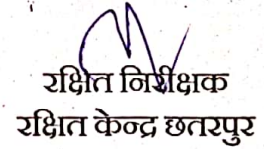 रक्षित निरीक्षक
रक्षित केन्द्र छतरपुर